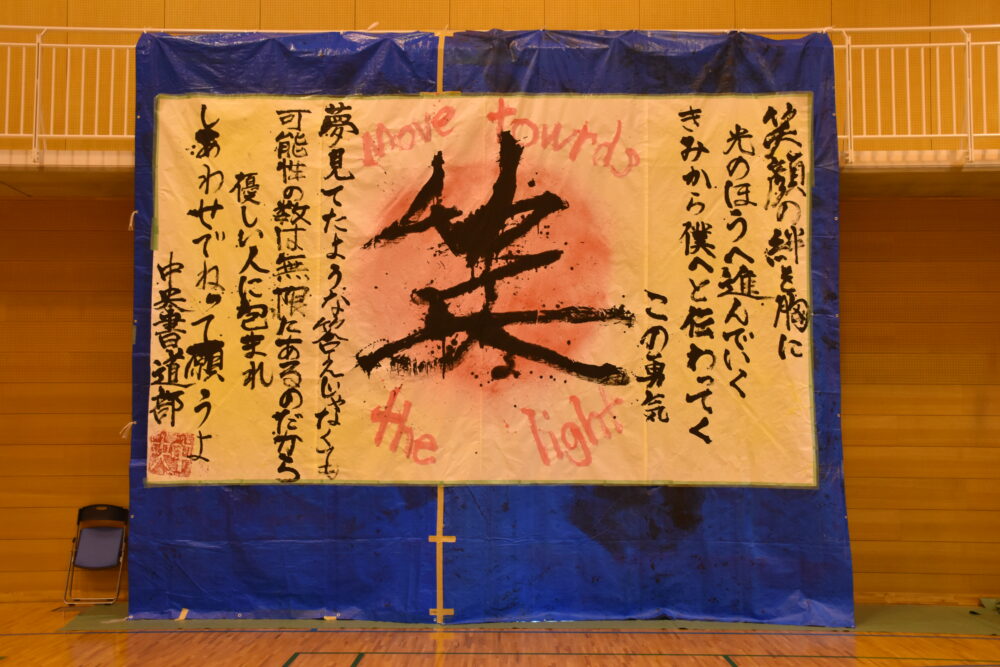 笑顔の絆を胸に
光のほうへ進んでいく
きみから僕へと伝わってく
この勇気
Move towards
笑
the light
夢見てたような答えじゃなくても
可能性の数は無限にあるのだから
優しい人に包まれ
しあわせでねって願うよ
中央書道部